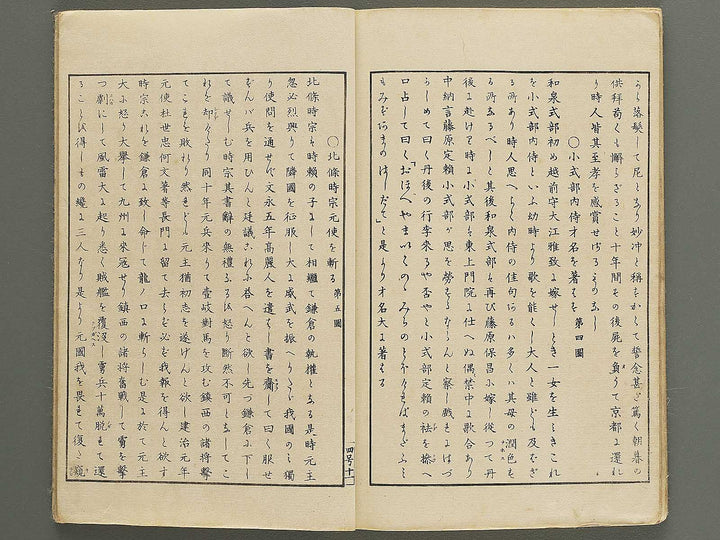 して尼となり妙冲と称をかして誓念甚だ篤く朝暮の
供拜苟くも懈らざること十年間その後屍を負うて京都に還れ
り時人皆其至孝を感賞せり
〇小式部内侍才名を著はす 第四圖
和泉式部初め越前守大江雅致に嫁せしとき一女を生
を小式部内侍といふ幼時より歌を能くし大人と雖ども及
る所あり時人思へらく内侍の佳句あるハ多くハ其母の潤色
る所なるべしと其後和泉式部ハ再び藤原保昌に嫁し従つて丹
後に赴けり時に小式部も東上門院に仕へぬ偶禁中に歌合あり
中納言藤原定賴小式部が思を勞するならんと察し戯
らしめて曰く丹後の行李來るや否やと小式部定賴の袪を捺へ
口占して曰く「おほへやまいくのゝみちのとほければまだふミ
もみずあまのはしだて」と是より才名大に著はる
〇北條時宗元使を斬る 第五圖
北條時宗ハ時賴の子にして相繼て鎌倉の執權となる是時元主
忽必烈興りて隣國を征服し大に威武を振へり我國のミ獨
り使問を通せず文永五年高麗人を遣はし書を齎して曰く服せ
ずんバ兵を用ひんと廷議これに答へんと欲し先づ鎌倉に下し
て議せしむ時宗其書辭の無禮なるを怒り断然不可となしてこ
れを却く 同十年元兵來りて壹岐對馬を攻む鎮西の諸將擊
てこれを敗れり然れども元主猶初志を遂げんと欲し建治元年
元使杜世忠何文著等長門に留て去らず必ず我報を得んと欲す
時宗これを鎌倉に致し命じて龍ノ口に斬らしむ是に於て元主
大に怒り大舉して九州に來冦せり鎮西の諸將奮戰して虜を擊
つ劇にして風雷大に起り悉く賊艦を覆没し虜兵十萬脱せて還
ることを得しもの纔に三人なり是より元國我を畏れて復た窺
四号十一